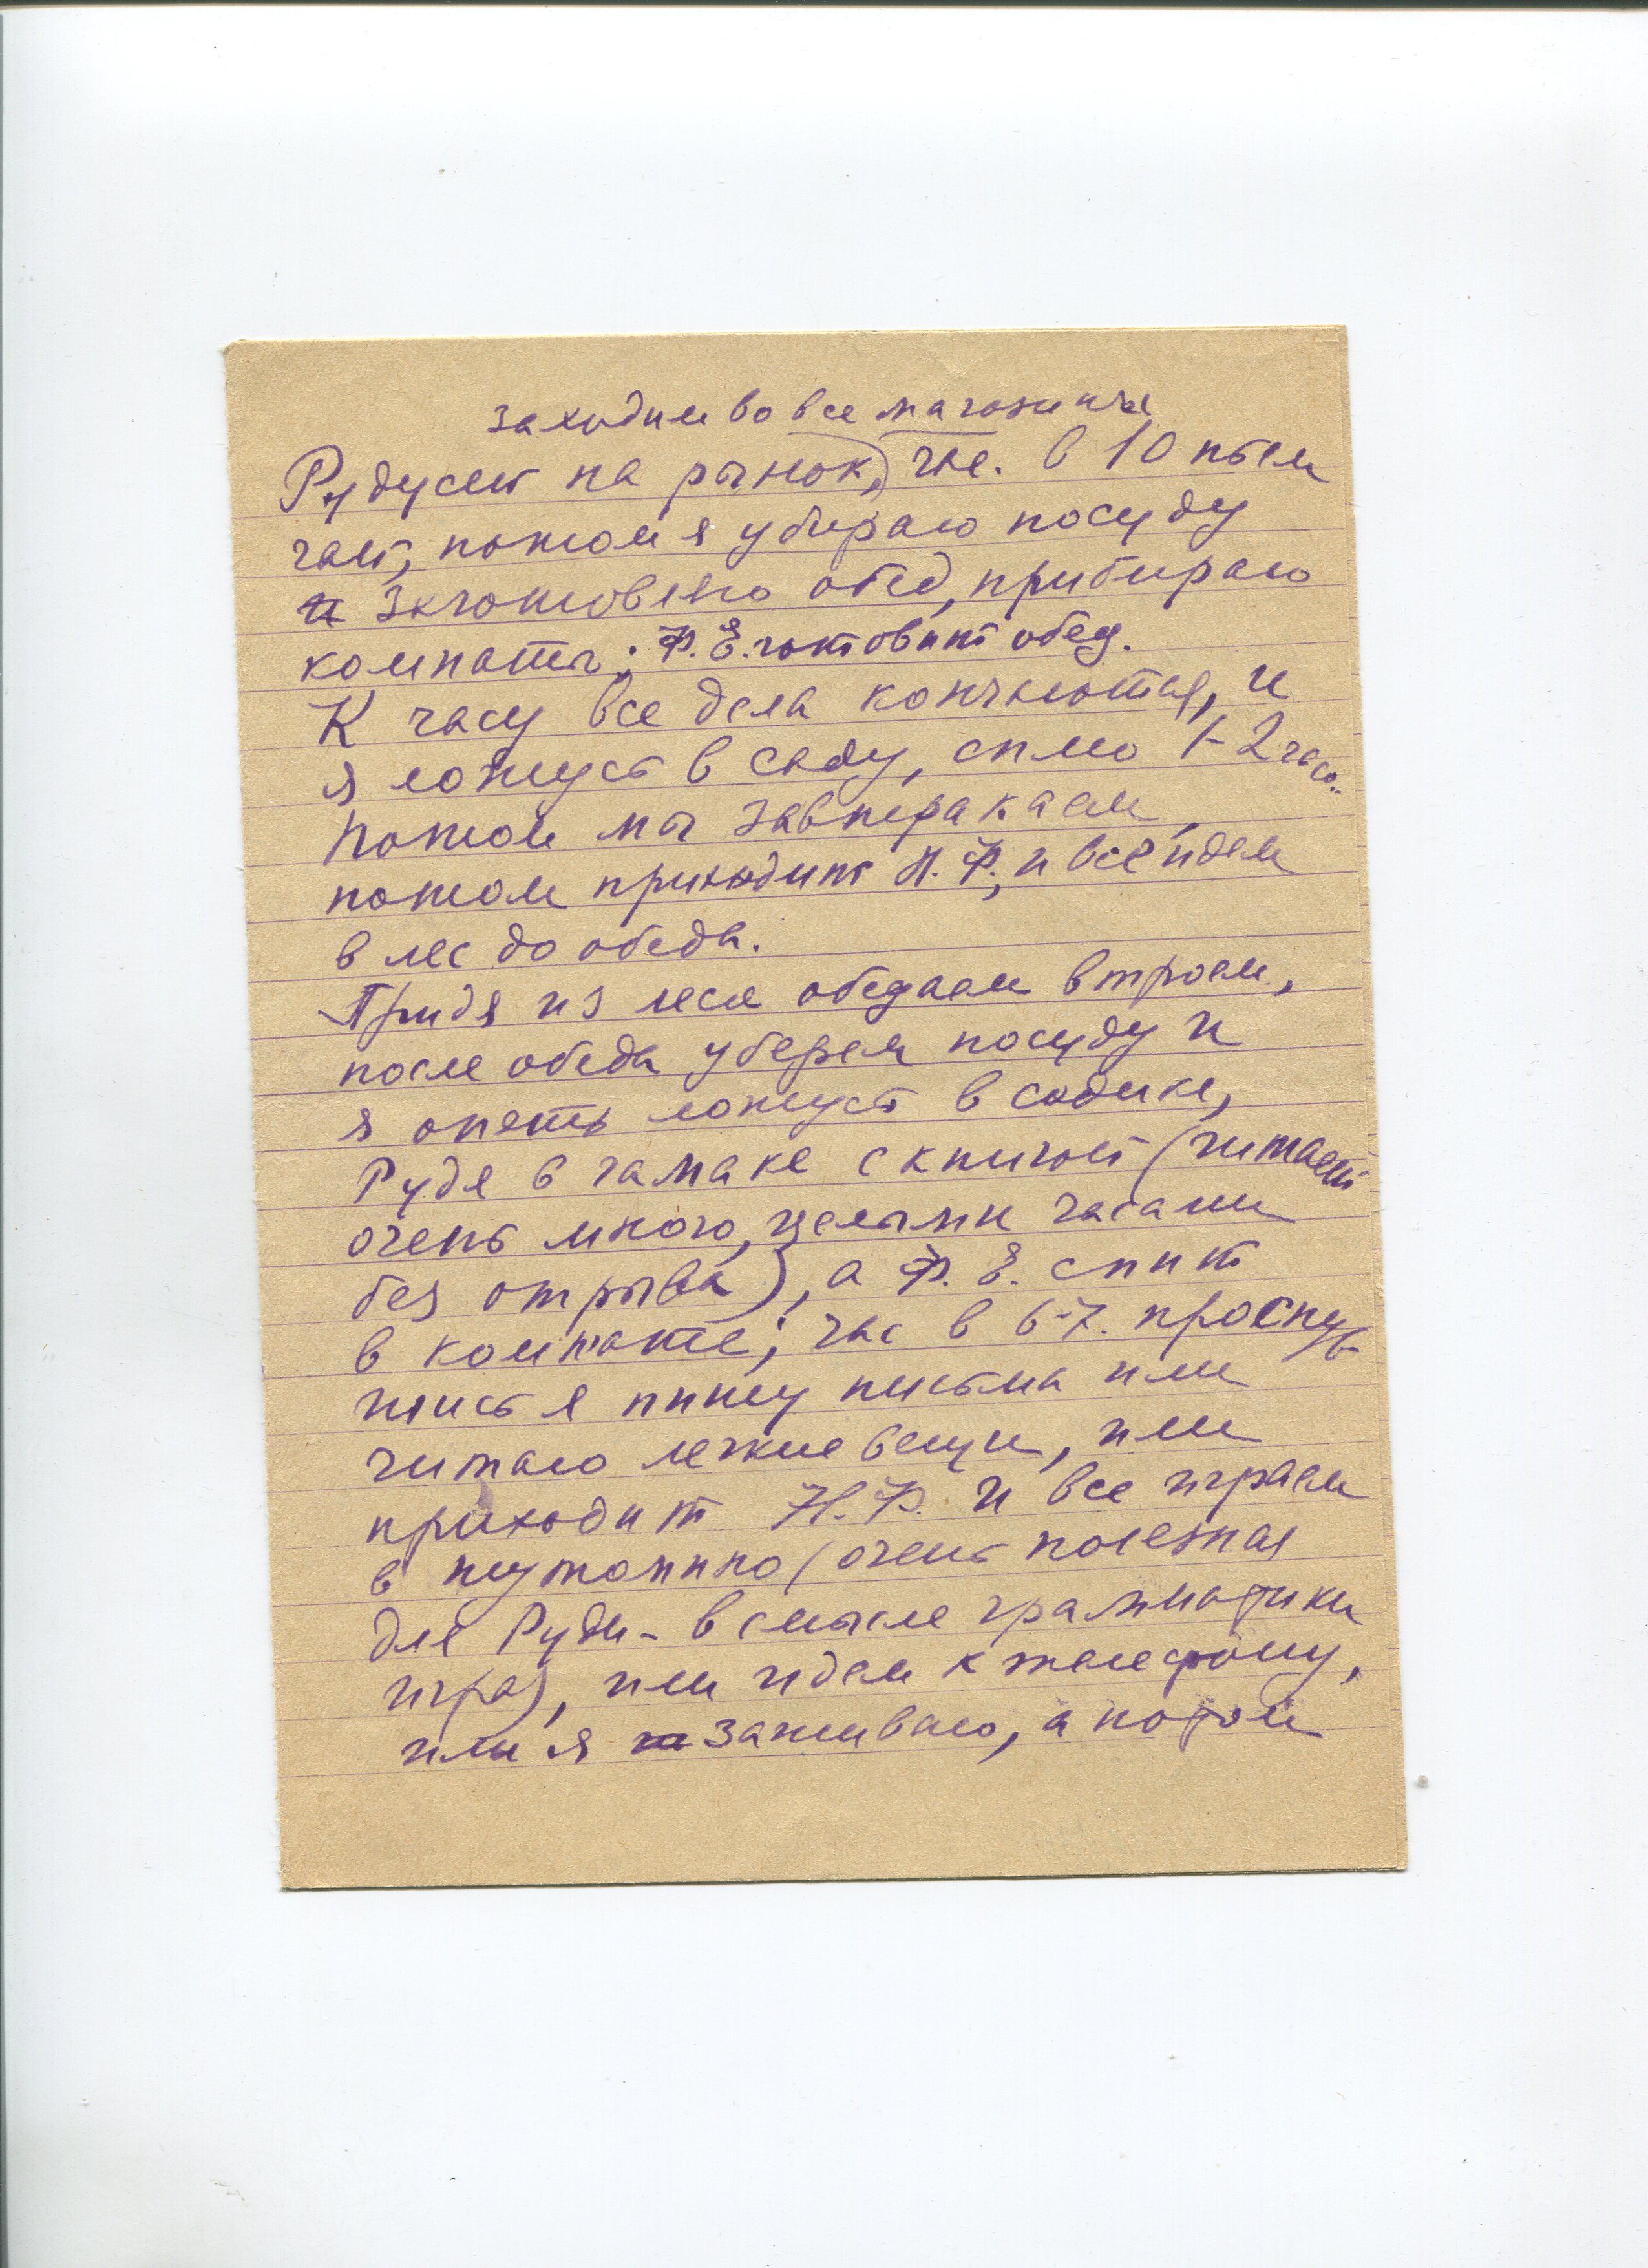 заходим во все магазины
Рудусей на рынок, час. в 10 пьем
чай, потом я убираю посуду
и заготовено обед, прибираю
комнаты; Ф. Е. готовит обед.
К часу все дела кончаются, и
я ложусь в саду, сплю 1-2 часа.
Потом мы завтракаем,
потом приходит Н. Ф., и все идем
в лес до обеда.
Придя из леса обедаем втроем,
после обеда уберем посуду и
я опять ложусь в садике,
Рудя в гамаке с книгой (читает
очень много, целыми часами
без отрыва), а Ф. Е. спит
в комнате; час в 6-7. проснув-
шись я пишу письма или
читаю легкие вещи, или
приходит Н. Ф. и все играем
в путанину (очень полезная
для Руди - в смысле грамматики
игра), или идем к телефону,
или я зашиваю, а потом